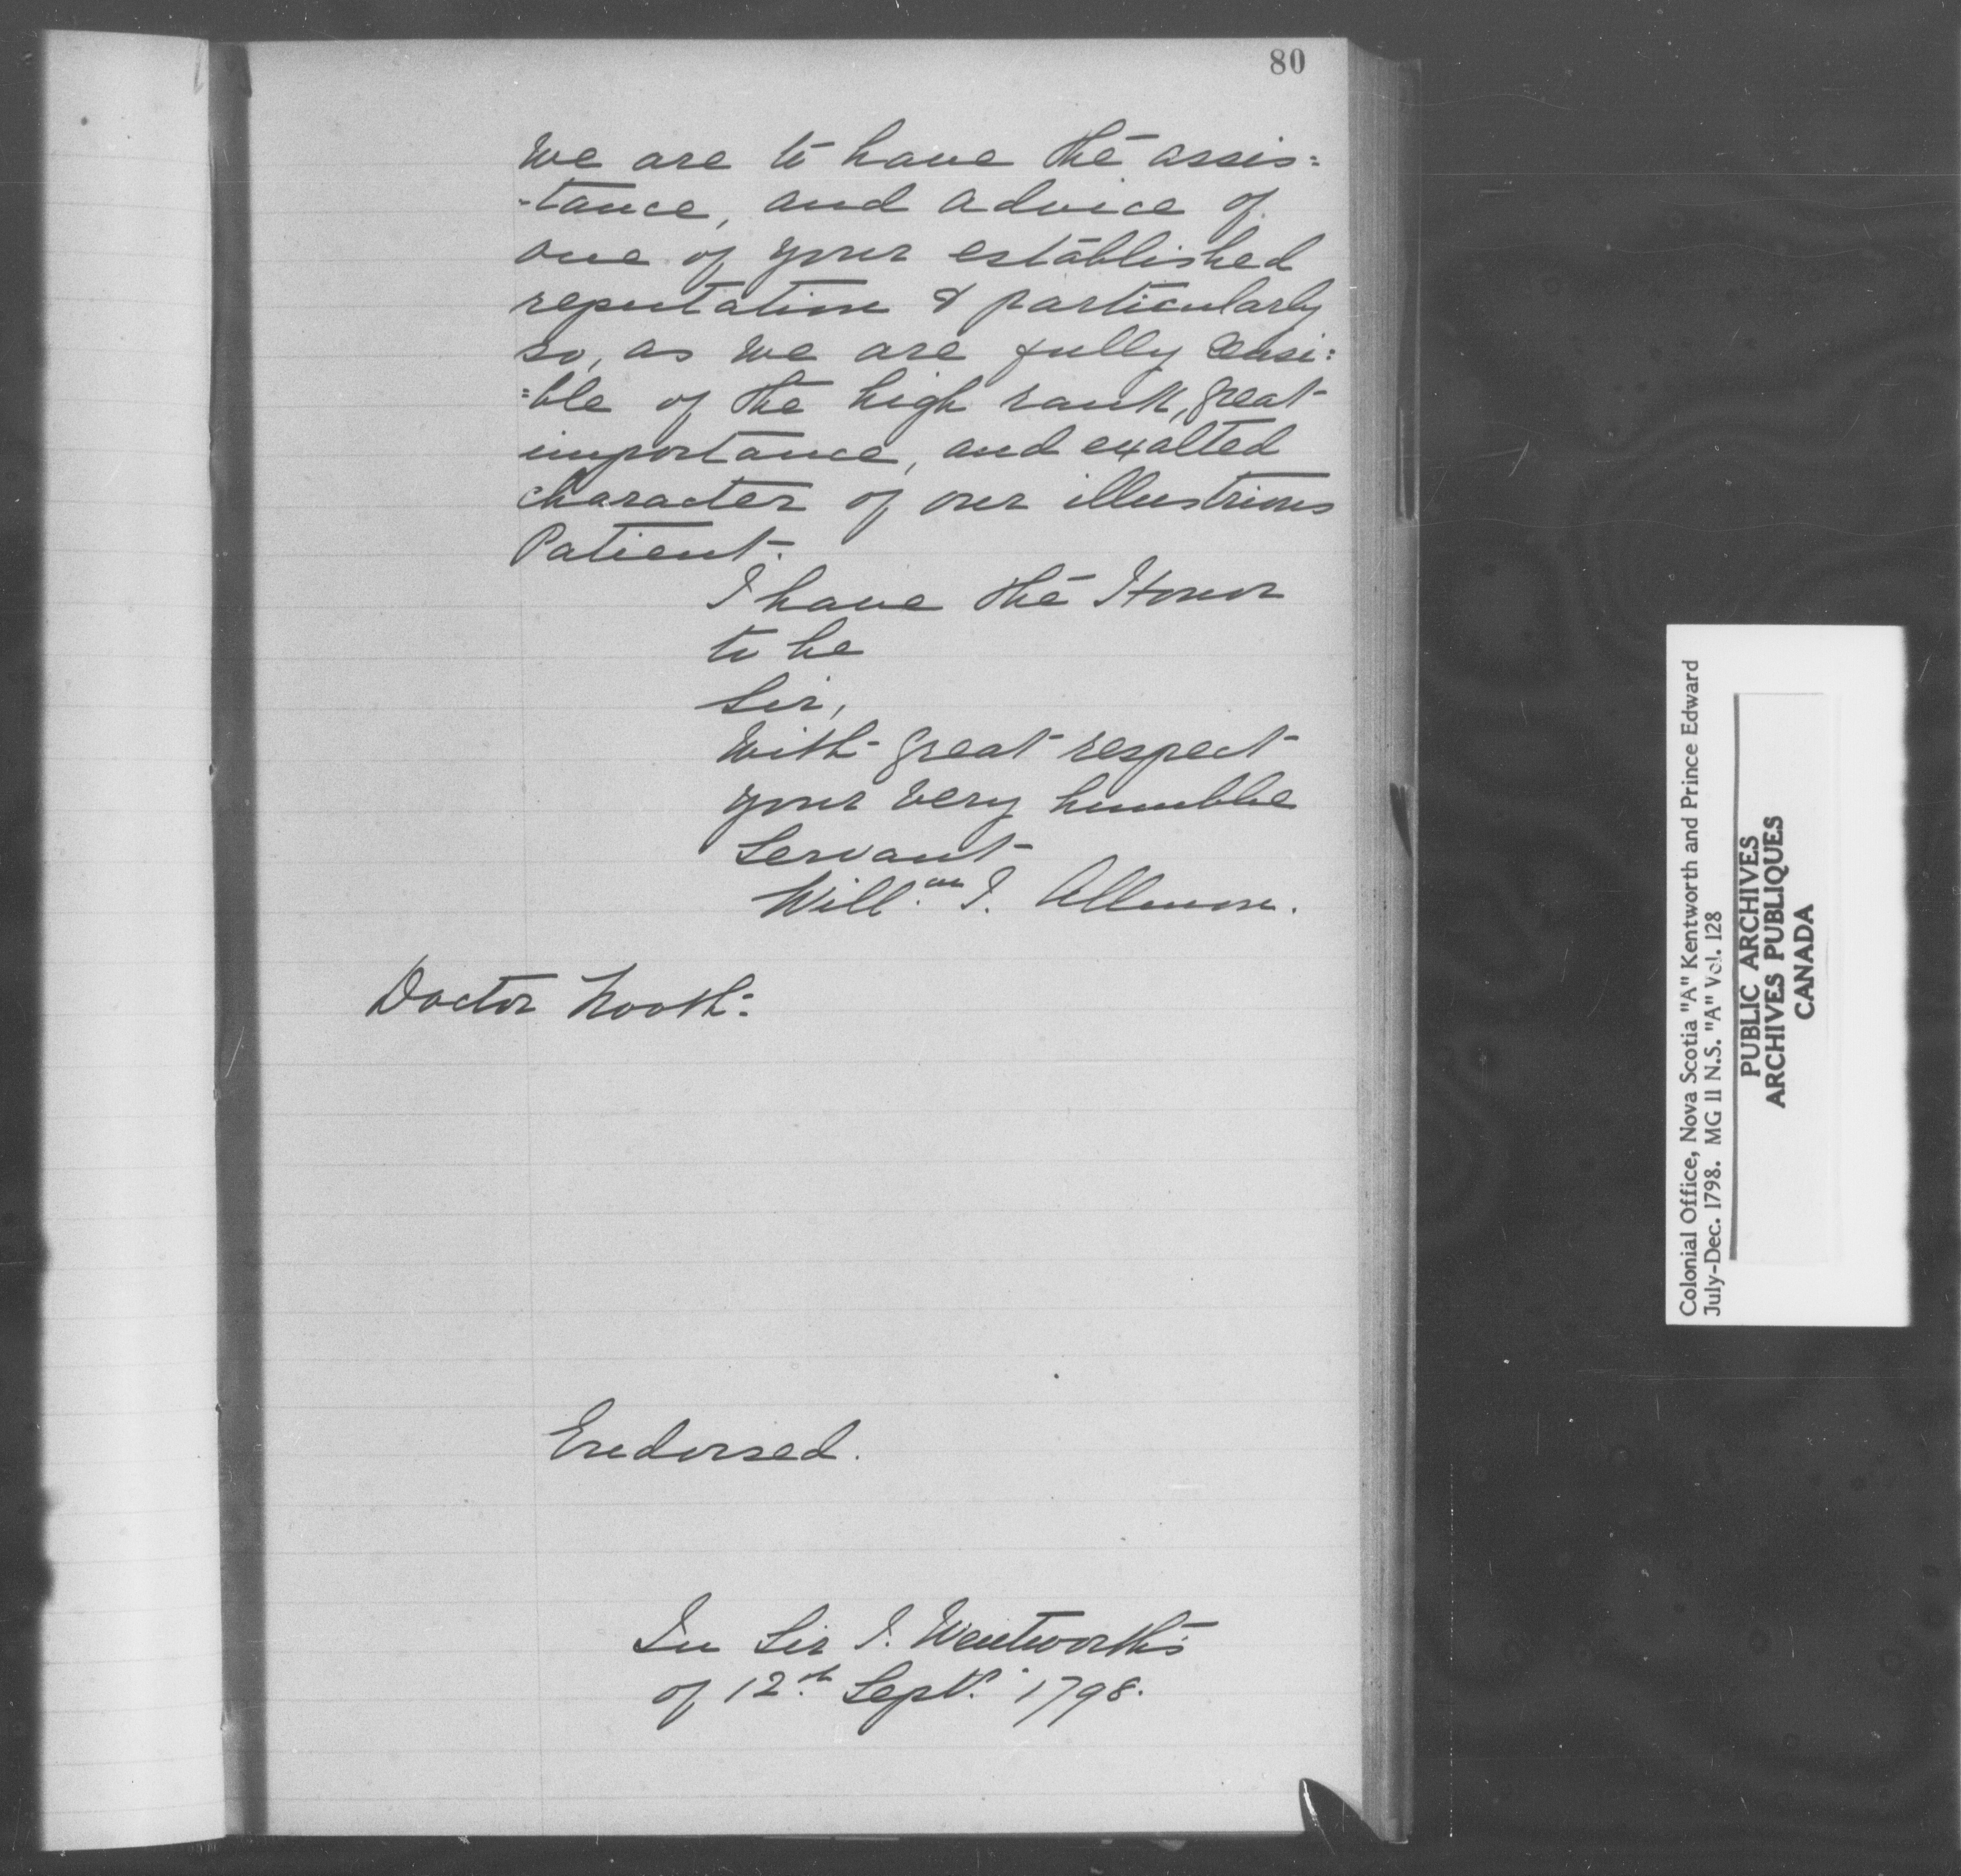 80
We are to have the assis=
-tance, and advice of
one of your established
reputation & particularly
so, as we are fully sensi=
=ble of the high rank, great
importance, and exalted
character of our illustrious
Patient.
I have the Honor
to be
Sir,
With great respect
your very humble
Servant
Will.m J. Allmon.
Doctor Nooth:
Endorsed.
In Sir J. Wentworth's
of 12.th Sept.r 1798.
Colonial Office, Nova Scotia "A" Kentworth and Prince Edward
July-Dec. 1798. MG 11 N.S. "A" Vol. 128
PUBLIC ARCHIVES
ARCHIVES PUBLIQUES
CANADA